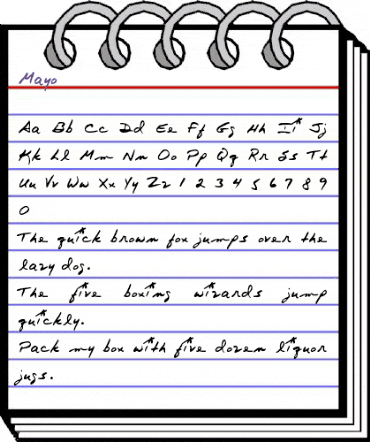 Mayo
Aa Bb Cc Dd Ee Ff Gg Hh Ii Jj
Kk Ll Mm Nn Oo Pp Qq Rr Ss Tt
Uu Vv Ww Xx Yy Zz 1 2 3 4 5 6 7 8 9
0
The quick brown fox jumps over the
lazy dog.
The five boxing wizards jump
quickly.
Pack my box with five dozen liquor
jugs.